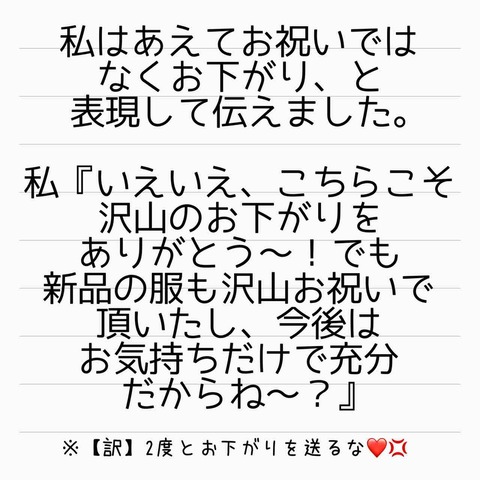 私はあえてお祝いでは
なくお下がり、と
表現して伝えました。
私『いえいえ、こちらこそ
沢山のお下がりを
ありがとう〜！でも
新品の服も沢山お祝いで
頂いたし、今後は
お気持ちだけで充分
だからね〜？』
※【訳】2度とお下がりを送るな❤️💢